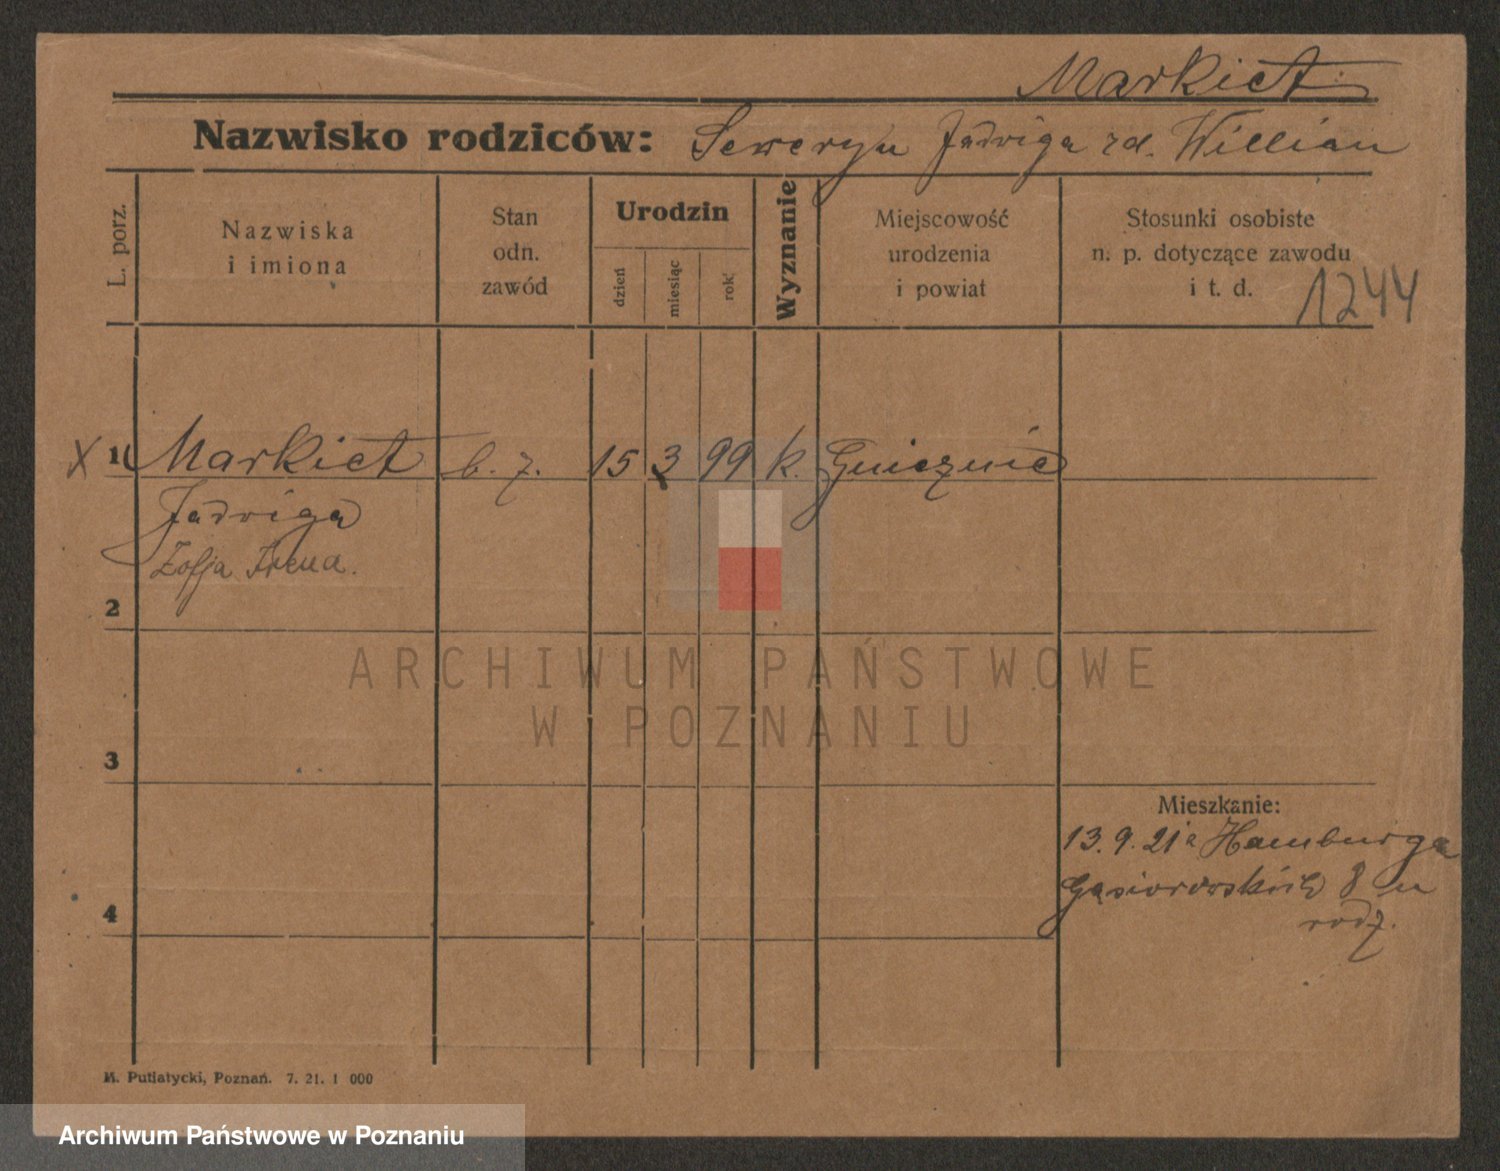 Markiet
Nazwisko rodziców: Seweryn Jadwiga zd. Willian
L. porz.
Nazwiska
i imiona
Stan
odn.
zawód
Urodzin
dzień
miesiąc
rok
Wyznanie
Miejscowość
urodzenia
i powiat
Stosunki osobiste
n. p. dotyczące zawodu
i t. d.
1244
X 1 Markiet b. z. 15 3 99 k. Gnieznie
Jadwiga
Zofja Irena.
2
ARCHIWUM PAŃSTWOWE
W POZNANIU
3
Mieszkanie:
13. 9. 21 z Hamburga
Gąsiorowskich 8 u
rodz.
4
M. Putiatycki, Poznań. 7. 21. 1 000
Archiwum Państwowe w Poznaniu